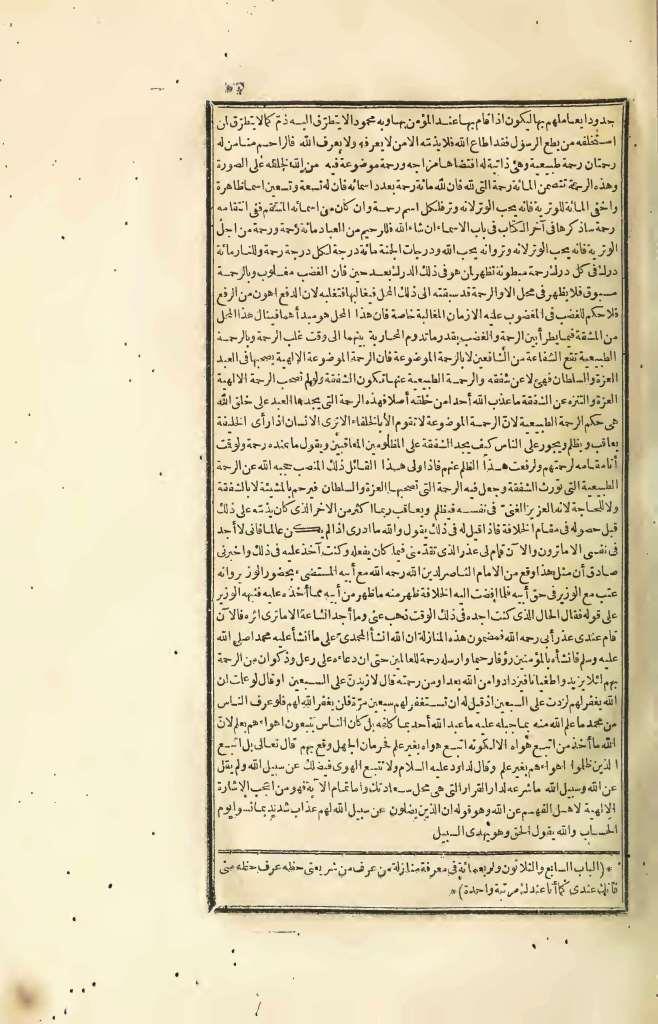 حدودا يعاملهم بها ليكون اذا قام بها عند المؤمن بها وبه محمودا لا يتطرّق اليه ذمّ كما لا يتطرّق ان
استخلفه من يطع الرسول فقد اطاع الله فلا يذمّه الا من لا يعرفه ولا يعرف الله فالراحم منا من له
رحمتان رحمة طبيعية وهى ذاتية له اقتضاها مزاجه ورحمة موضوعة فيه من الله بخلقه على الصورة
وهذه الرحمة تتضمن المائة رحمة التى لله فان لله مائة رحمة بعدد اسمائه فان له تسعة وتسعين اسما ظاهرة
واخفى المائة للوترية فانه يحب الوتر لانه وتر فلكل اسم رحمة وان كان من اسمائه المنتقم ففى انتقامه
رحمة سأذكرها فى آخر الكتاب فى باب الاسماء ان شاء الله فللرحيم من العباد مائة رحمة ورحمة من اجل
الوترية فانه يحب الوتر لانه وتر وانه يحب الله ودرجات الجنة مائة درجة لكل درجة رحمة وللنار مائة
درك فى كل درك رحمة مبطونة تظهر لمن هو فى ذلك الدرك بعد حين فان الغضب مغلوب وبالرحمة
مسبوق فلا يظهر فى محل الا والرحمة قد سبقته الى ذلك المحل فيغالبها فتغلبه لان الدفع اهون من الرفع
فلا حكم للغضب فى المغضوب عليه الا زمان المغالبة خاصة فان هذا المحل هو ميدانهما فينال هذا المحل
من المشقة فيما يطرأ بين الرحمة والغضب بقدر ما تدوم المحاربة بينهما الى وقت غلب الرحمة وبالرحمة
الطبيعية تقع الشفاعة من الشافعين لا بالرحمة الموضوعة فان الرحمة الموضوعة الالهية يصحبها فى العبد
العزة والسلطان فهى لا عن شفقة والرحمة الطبيعية عنها تكون الشفقة ولو لم تصحب الرحمة الالهية
العزة والتنزه عن الشفقة ما عذب الله أحدا من خلقه أصلا فهذه الرحمة التى يجدها العبد على خلق الله
هى حكم الرحمة الطبيعية لانّ الرحمة الموضوعة لا تقوم الا بالخلفاء الا ترى الانسان اذا رأى الخليفة
يعاقب ويظلم ويجور على الناس كيف يجد الشفقة على المظلومين المعاقبين ويقول ما عنده رحمة ولو قت
أنا مقامه لرحمتهم ولرفعت هذا الظلم عنهم فاذا ولى هذا القائل ذلك المنصب حجبه الله عن الرحمة
الطبيعية التى تورث الشفقة وجعل فيه الرحمة التى تصحبها العزة والسلطان فيرحم بالمشيئة لا بالشفقة
ولا للحاجة لانه العزيز الغنىّ فى نفسه فيظلم ويعاقب ربما اكثر من الآخر الذى كان يذمّه على ذلك
قبل حصوله فى مقام الخلافة فاذا قيل له فى ذلك يقول والله ما ادرى اذا لم يكن عالما فانى لا أجد
فى نفسى الا ما ترون والآن قام لى عذر الذى تقدّمنى فيما كان يفعله وكنت آخذ عليه فى ذلك واخبرنى
صادق أن مثل هذا وقع من الامام الناصر لدين الله رحمه الله مع أبيه المستضىء بحضور الوزير وانه
عتب مع الوزير فى حق أبيه فلما افضت اليه الخلافة ظهر منه ما ظهر من أبيه مما أخذه عليه فنبهه الوزير
على قوله فقال الحال الذى كنت اجده فى ذلك الوقت ذهب عنى وما أجد الساعة الا ما ترى اثره فالآن
قام عندى عذر أبى رحمه الله فمضمون هذه المنازلة ان الله انشأ المحمدىّ على ما أنشأ عليه محمدا صلى الله
عليه وسلم فانشأه بالمؤمنين رؤفا رحيما وارسله رحمة للعالمين حتى ان دعاءه على رعل وذكوان من الرحمة
بهم لئلا يزيدوا طغيانا فيزدادوا من الله بعدا ومن رحمته قال لأزيدنّ على السبعين أو قال لو علمت ان
الله يغفر لهم لزدت على السبعين اذ قيل له ان تستغفر لهم سبعين مرّة فلن يغفر الله لهم فلو عرف الناس
من محمد ما علم الله منه بما جبله عليه ما عبد الله أحد بما كلفه بل كان الناس يتبعون اهواءهم بعلم لانّ
الله ما آخذ من اتبع هواه الا لكونه اتبع هواه بغير علم فحرمان الجهل وقع بهم قال تعالى بل اتبع
الذين ظلموا اهواءهم بغير علم وقال لداود عليه السلام ولا تتبع الهوى فيضلك عن سبيل الله ولم يقل
عن الله وسبيل الله ما شرعه لدار القرار التى هى محل سعادتك واما تمام الآية فهو من اعجب الاشارة
الالهية لاهل الفهم عن الله وهو قوله ان الذين يضلون عن سبيل الله لهم عذاب شديد بما نسوا يوم
الحساب والله يقول الحق وهو يهدى السبيل
* (الباب السابع والثلاثون واربعمائة فى معرفة منازلة من عرف من شريعتى حظه عرف حظه منى
فانك عندى كما أنا عندك مرتبة واحدة) *